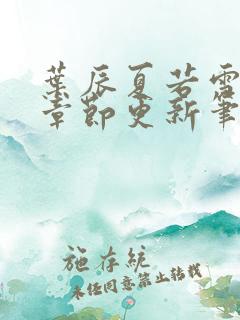 葉辰夏若雪
章節更新筆
施存統
未经同意禁止转载